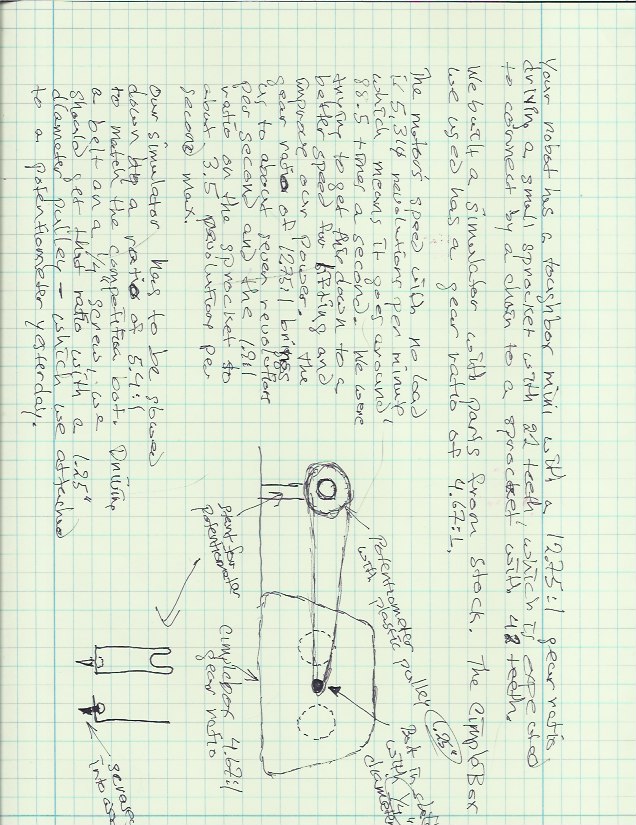 Your robot has a toughbox mini with a 12.75:1 gear ratio
driving a small sprocket with 22 teeth, which is expected
to connect by a chain to a sprocket with 42 teeth.
We built a simulator with parts from stock. The CimpleBox
we used has a gear ratio of 4.67:1.
The motors speed with no load
is 5,314 revolutions per minute
which means it goes around
88.5 times a second. We were
trying to get this down to a
better speed for lifting and
improve our power. The
gear ratio of 12.75:1 brings
us to about seven revolutions
per second and the 1.9:1
ratio on the sprocket to
about 3.5 revolutions per
second max.
Our simulator has to be slowed
down by a ratio of 5.4:1
to match the competition bot. Driving
a belt on a 1/4 screw, we
should get that ratio with a 1.25"
diameter pulley - which we attached
to a potentiometer yesterday.
Potentiometer
with plastic pulley 1.25"
Bolt in shaft
with 1/4"
diameter
potentiometer
Cimplebox 4.67:1
gear ratio